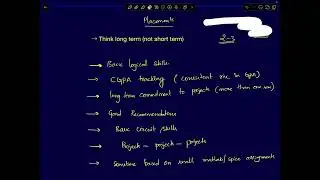 Placements
→ Think long term (not short term)
2-3
→ Basic logical skills
→ CGPA tracking (consistent rise in GPA)
→ long term commitment to projects (more than one sem)
→ Good Recommendations
→ Basic circuit skills
→ Project - project - projects
→ Sometime based on small matlab/spice assignments